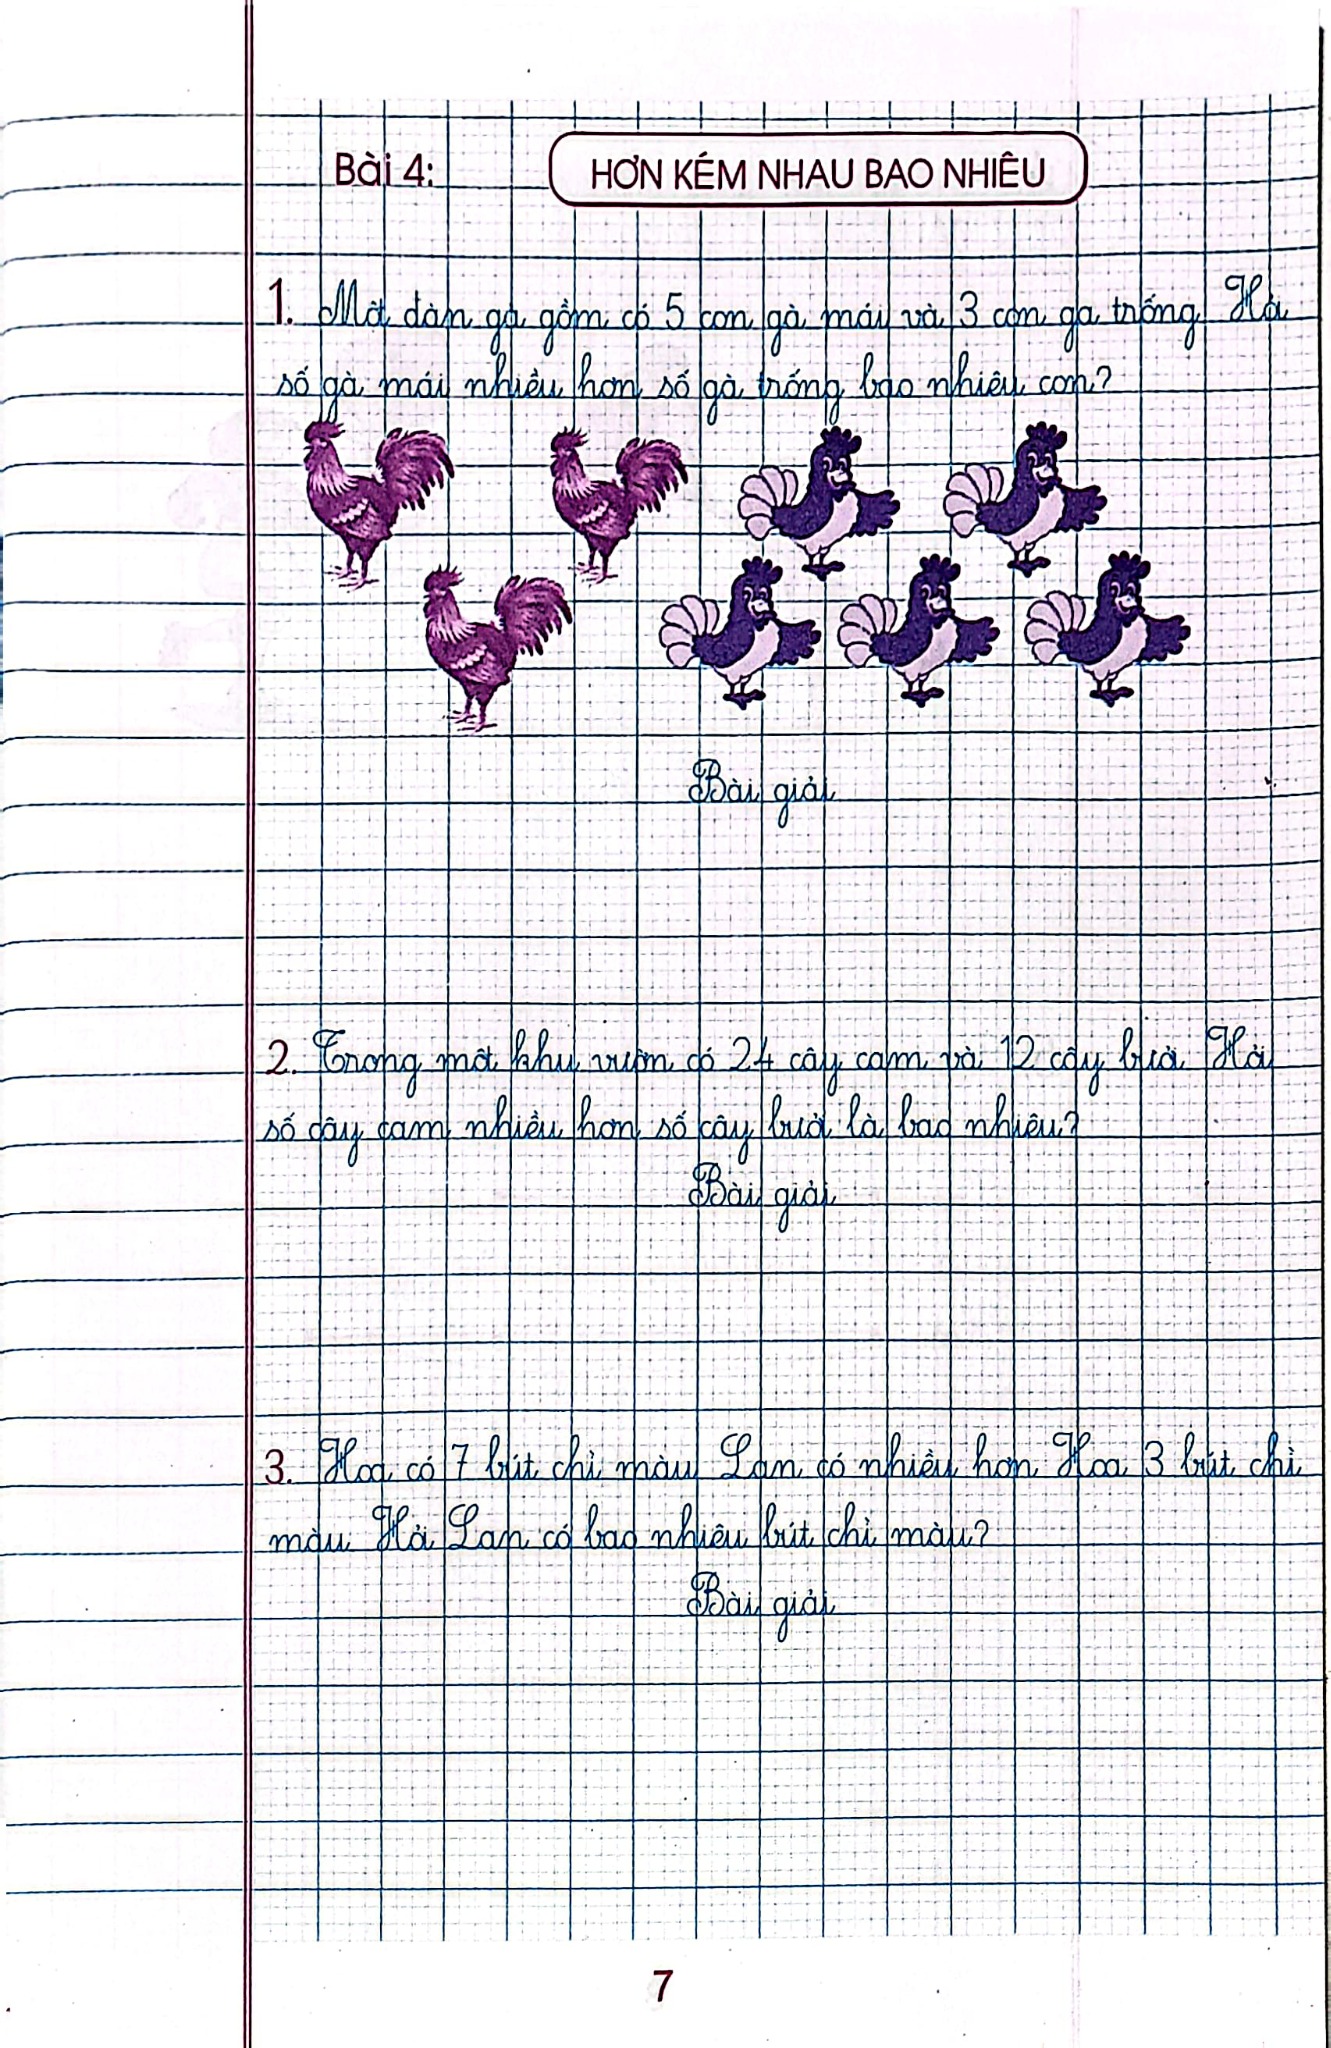 Bài 4: HƠN KÉM NHAU BAO NHIÊU
1. Một đàn gà gồm có 5 con gà mái và 3 con ga trống. Hỏi
số gà mái nhiều hơn số gà trống bao nhiêu con?
Bài giải
2. Trong một khu vườn có 24 cây cam và 12 cây bưởi. Hỏi
số cây cam nhiều hơn số cây bưởi là bao nhiêu?
Bài giải
3. Hoa có 7 bút chì màu. Lan có nhiều hơn Hoa 3 bút chì
màu. Hỏi Lan có bao nhiêu bút chì màu?
Bài giải
7